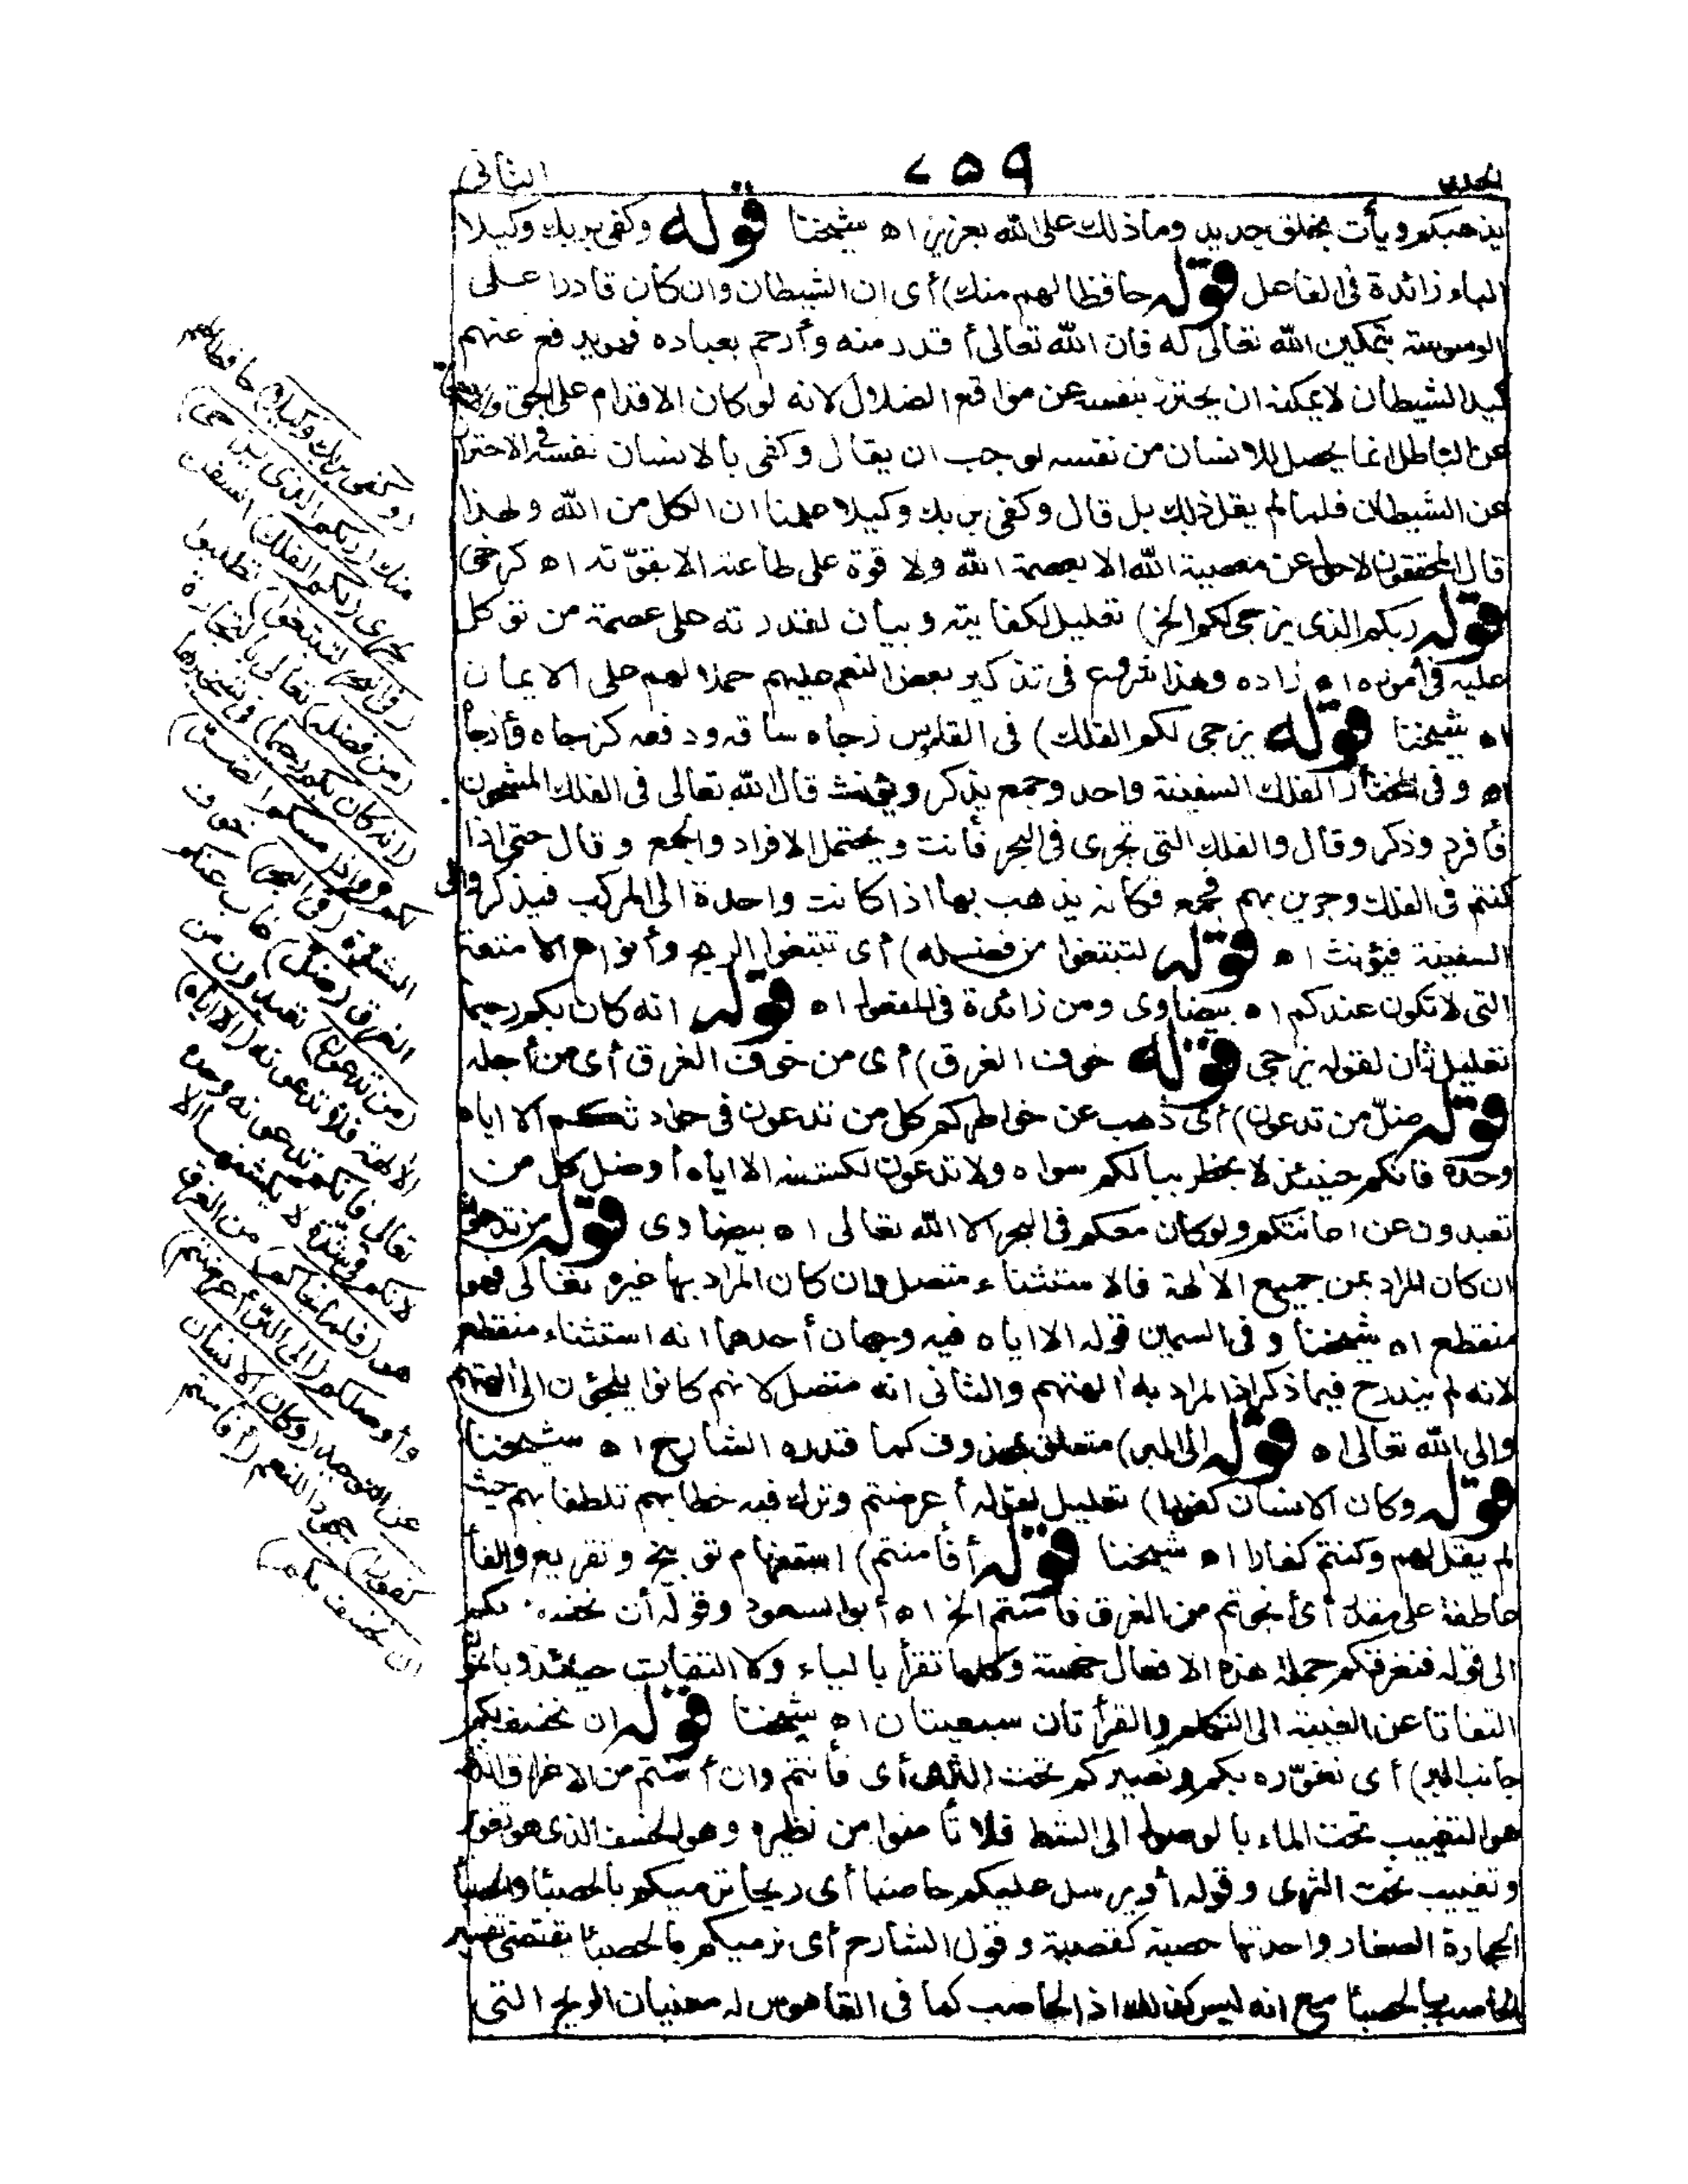 الجزء
٧٥٩
الثانى
يذهبكم ويأت بخلق جديد وما ذلك على الله بعزيز اه شيخنا قوله وكفى بربك وكيلا
الباء زائدة فى الفاعل قوله حافظا لهم منك) أى ان الشيطان وان كان قادرا على
الوسوسة بتمكين الله تعالى له فان الله تعالى أقدر منه وأرحم بعباده فهو يدفع عنهم
كيد الشيطان لا يمكنه ان يحترز بنفسه عن مواقع الضلال لانه لو كان الاقدام على الحق و
عن الباطل انما يحصل للانسان من نفسه لوجب ان يقال وكفى بالانسان نفسه فى الاحتراز
عن الشيطان فلما لم يقل ذلك بل قال وكفى بربك وكيلا علمنا ان الكل من الله ولهذا
قال المحققون لا حول عن معصية الله الا بعصمة الله ولا قوة على طاعته الا بقوّته اه كرخى
قوله ربكم الذى يزجى لكم الخ) تعليل لكفايته وبيان لقدرته على عصمة من توكل
عليه فى أموره اه زاده وهذا شروع فى تذكير بعض النعم عليهم حملا لهم على الايمان
اه شيخنا قوله يزجى لكم الفلك) فى القاموس زجاه ساقه ودفعه كزجاه وأزجاه
اه وفى المختار الفلك السفينة واحد وجمع يذكر ويؤنث قال الله تعالى فى الفلك المشحون
فأفرد وذكر وقال والفلك التى تجرى فى البحر فأنث ويحتمل الافراد والجمع وقال حتى اذا
كنتم فى الفلك وجرين بهم فجمع فكأنه يذهب بها اذا كانت واحدة الى المركب فيذكر والى
السفينة فيؤنث اه قوله لتبتغوا من فضله) أى تبتغوا الربح وأنواع الامتعة
التى لا تكون عندكم اه بيضاوى ومن زائدة فى المفعول اه قوله انه كان بكم رحيما
تعليل ثان لقوله يزجى قوله خوف الغرق) أى من خوف الغرق أى من أجله
قوله ضلّ من تدعون) أى ذهب عن خواطركم كل من تدعون فى حوادثكم الا اياه
وحده فانكم حينئذ لا يخطر ببالكم سواه ولا تدعون لكشفه الا اياه أو ضل كل من
تعبدون عن اعانتكم ولو كان معكم فى البحر الا الله تعالى اه بيضاوى قوله من تدعون
ان كان المراد بمن جميع الآلهة فالاستثناء متصل وان كان المراد بها غيره تعالى فهو
منقطع اه شيخنا وفى السمين قوله الا اياه فيه وجهان أحدهما انه استثناء منقطع
لانه لم يندرج فيما ذكر اذ المراد به آلهتهم والثانى انه متصل لانهم كانوا يلجئون الى آلهتهم
والى الله تعالى اه قوله الى البر) متعلق بمحذوف كما قدره الشارح اه شيخنا
قوله وكان الانسان كفورا) تعليل لقوله أعرضتم وترك فيه خطابهم تلطفا بهم حيث
لم يقل لهم وكنتم كفارا اه شيخنا قوله أفأمنتم) استفهام توبيخ وتقريع والفاء
عاطفة على مقدر أى أنجوتم من الغرق فأمنتم الخ اه أبو السعود وقوله أن نخسف بكم
الى قوله فنغرقكم جملة هذه الافعال خمسة وكلها تقرأ بالياء ولا التفات حينئذ وبالنون
التفاتا عن الغيبة الى التكلم والقرأتان سبعيتان اه شيخنا قوله ان نخسف بكم
جانب البر) أى نغوّره بكم ونصيركم تحت الثرى أى فأنتم وان أمنتم من الاغراق الذى
هو التغييب تحت الماء بالوصول الى الشط فلا تأمنوا من نظيره وهو الخسف الذى هو تغوير
وتغييب تحت الثرى وقوله أو يرسل عليكم حاصبا أى ريحا ترميكم بالحصباء والحصباء
الحجارة الصغار واحدتها حصبة كقصبة وقول الشارح أى نرميكم بالحصباء يقتضى تفسير
الحاصب بالحصباء مع انه ليس كذلك اذ الحاصب كما فى القاموس له معنيان الريح التى
(وكفى بربك وكيلا) حافظا لهم
منك (ربكم الذى يزجى)
يجرى (لكم الفلك) السفن
(فى البحر لتبتغوا) تطلبوا
(من فضله) تعالى بالتجارة
(انه كان بكم رحيما) فى تسخيرها
لكم (واذا مسكم الضر)
الشدة (فى البحر) خوف
الغرق (ضل) غاب عنكم
(من تدعون) تعبدون من
الآلهة فلا تدعونه (الا اياه)
تعالى فانكم تدعونه وحده
لانكم فى شدّة لا يكشفها الا
هو (فلما نجاكم) من الغرق
وأوصلكم (الى البر أعرضتم)
عن التوحيد (وكان الانسان
كفورا) جحودا للنعم (أفأمنتم
ان نخسف بكم)